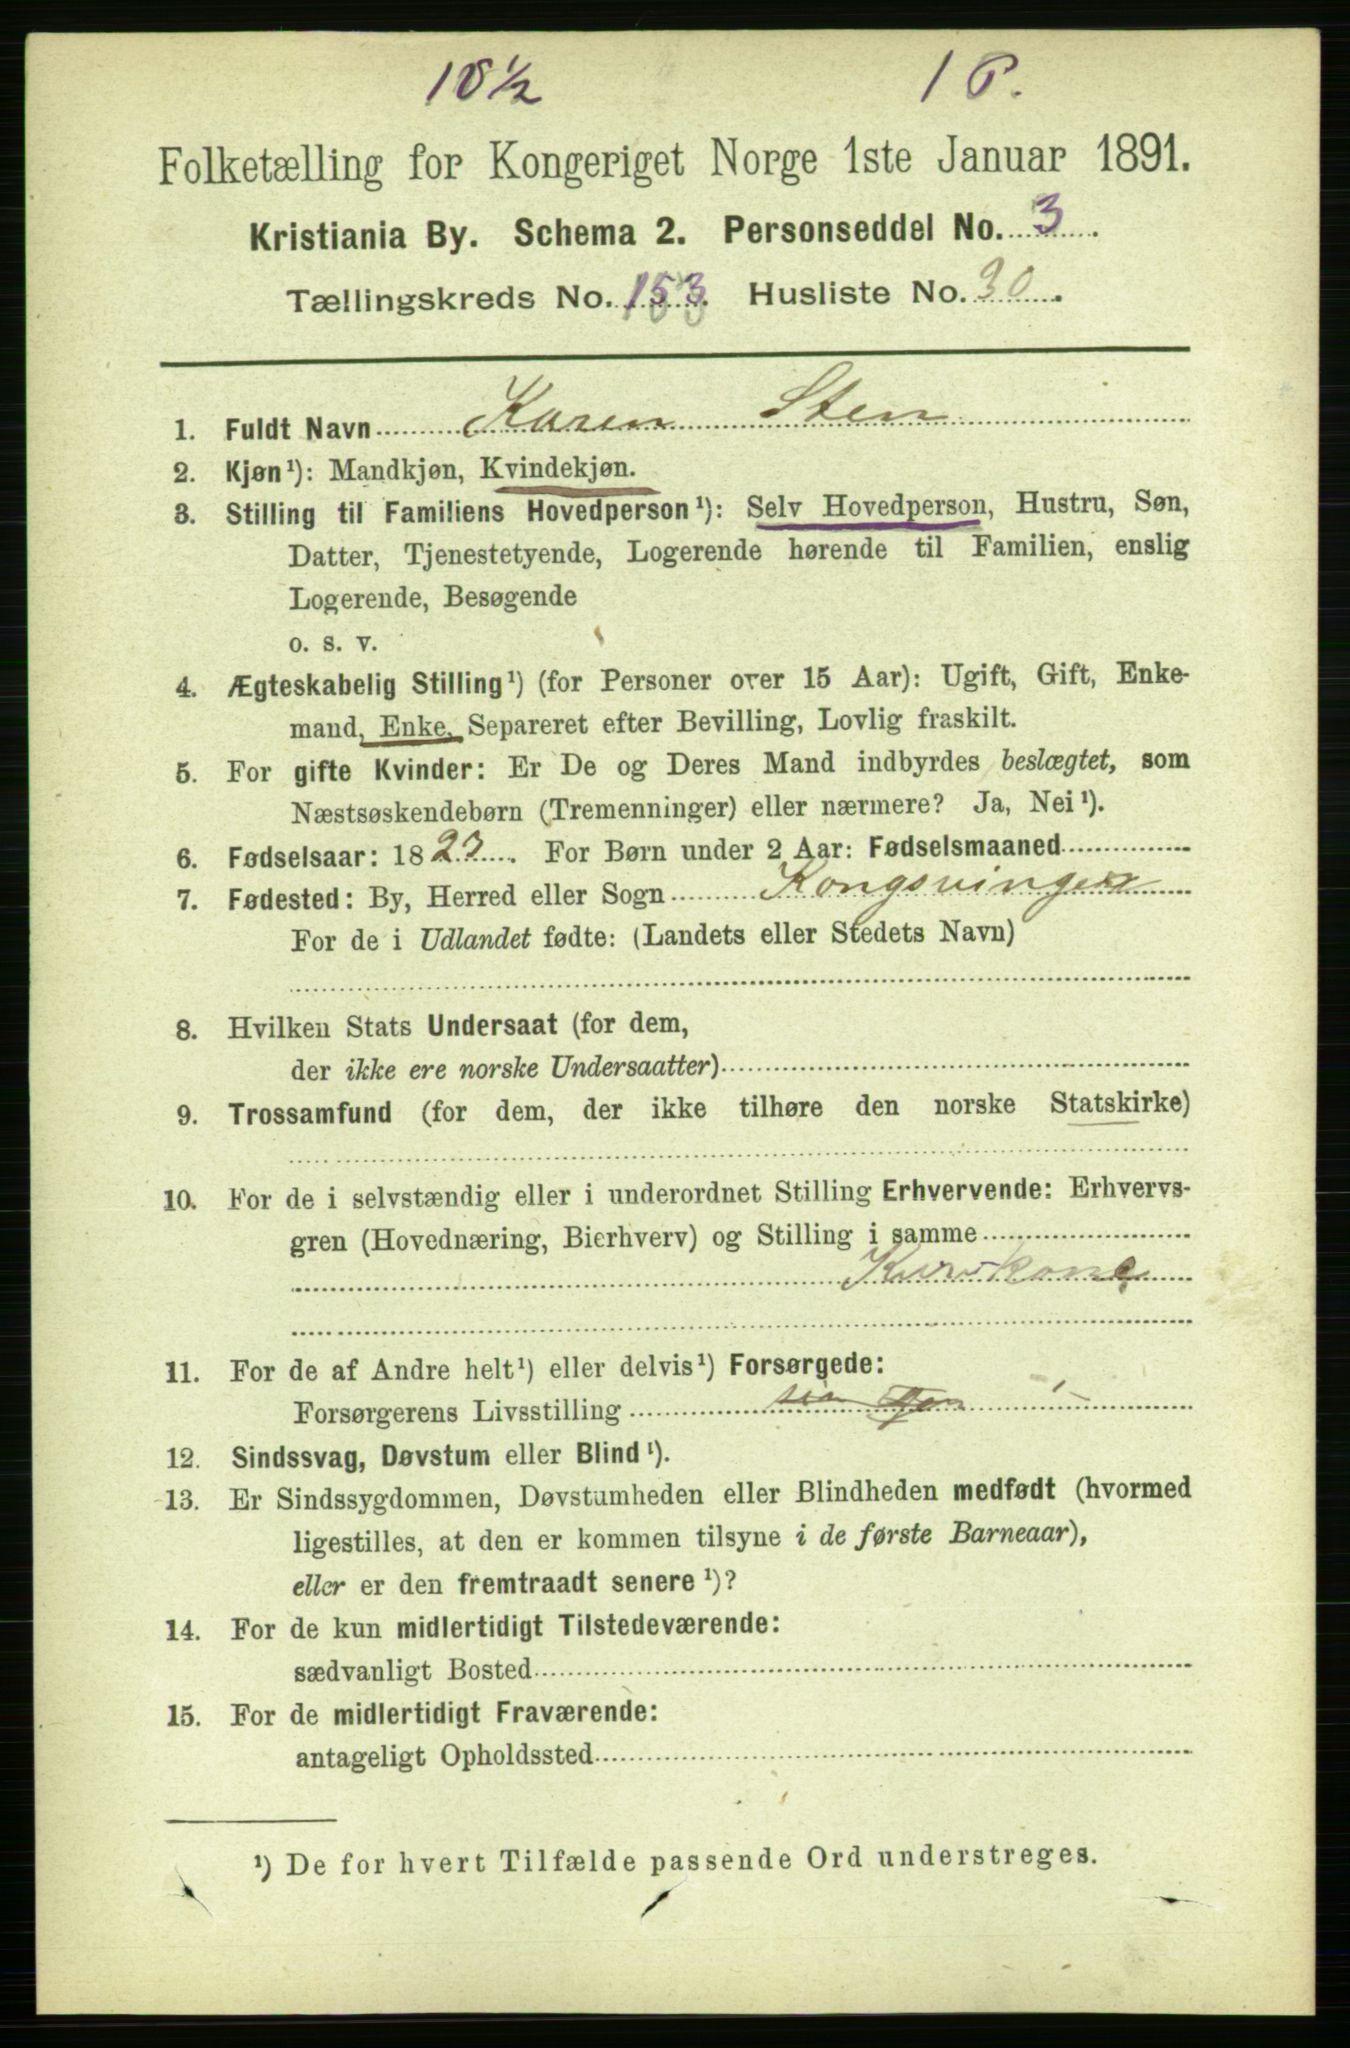 10½ 1 P.
Folketælling for Kongeriget Norge 1ste Januar 1891.
Kristiania By. Schema 2. Personseddel No. 3.
Tællingskreds No. 153. Husliste No. 30.
1. Fuldt Navn Karen Sten
2. Kjøn¹): Mandkjøn, Kvindekjøn.
3. Stilling til Familiens Hovedperson¹): Selv Hovedperson, Hustru, Søn,
Datter, Tjenestetyende, Logerende hørende til Familien, enslig
Logerende, Besøgende
o. s. v.
4. Ægteskabelig Stilling¹) (for Personer over 15 Aar): Ugift, Gift, Enke-
mand, Enke, Separeret efter Bevilling, Lovlig fraskilt.
5. For gifte Kvinder: Er De og Deres Mand indbyrdes beslægtet, som
Næstsøskendebørn (Tremenninger) eller nærmere? Ja, Nei¹).
6. Fødselsaar: 1823. For Børn under 2 Aar: Fødselsmaaned
7. Fødested: By, Herred eller Sogn Kongsvinger
For de i Udlandet fødte: (Landets eller Stedets Navn)
8. Hvilken Stats Undersaat (for dem,
der ikke ere norske Undersaatter)
9. Trossamfund (for dem, der ikke tilhøre den norske Statskirke)
10. For de i selvstændig eller i underordnet Stilling Erhvervende: Erhvervs-
gren (Hovednæring, Bierhverv) og Stilling i samme
11. For de af Andre helt¹) eller delvis¹) Forsørgede:
Forsørgerens Livsstilling
12. Sindssvag, Døvstum eller Blind¹).
13. Er Sindssygdommen, Døvstumheden eller Blindheden medfødt (hvormed
ligestilles, at den er kommen tilsyne i de første Barneaar),
eller er den fremtraadt senere¹)?
14. For de kun midlertidigt Tilstedeværende:
sædvanligt Bosted
15. For de midlertidigt Fraværende:
antageligt Opholdssted
¹) De for hvert Tilfælde passende Ord understreges.